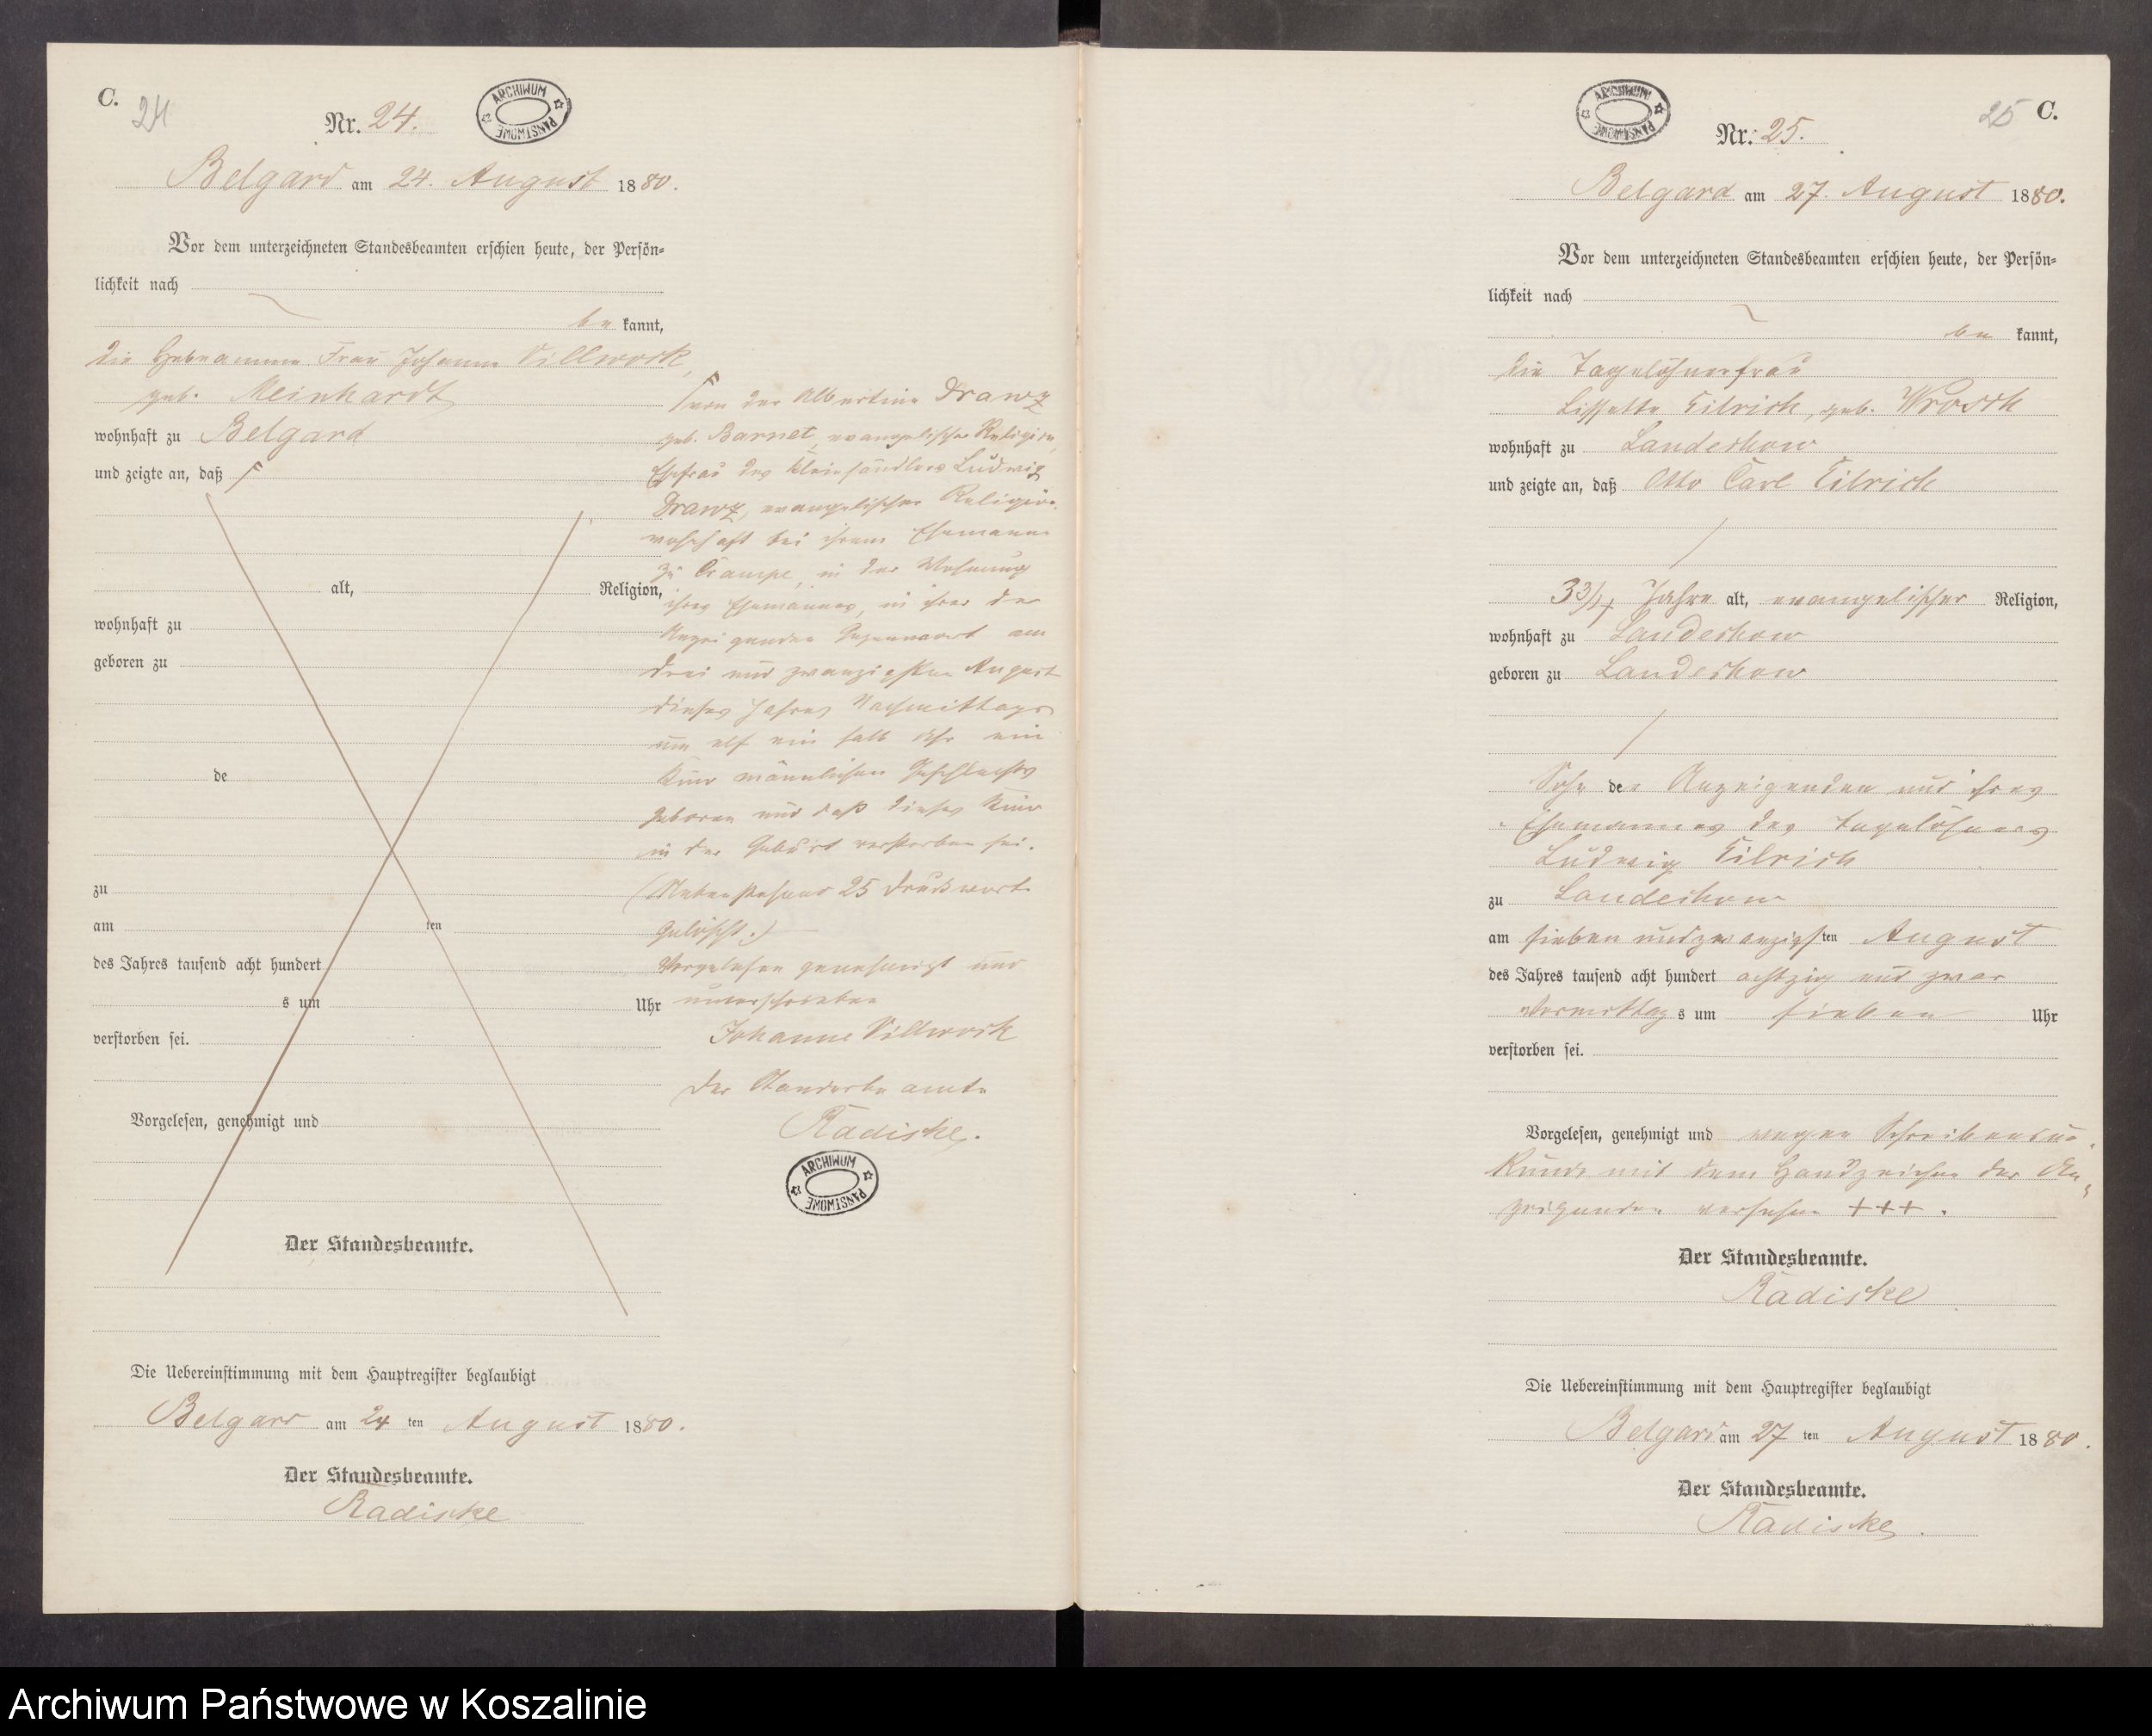 C.
24
Nr. 24.
ARCHIWUM PAŃSTWOWE
Belgard am 24. August 1880.
Vor dem unterzeichneten Standesbeamten erschien heute, der Persön=
lichkeit nach
be kannt,
die Hebeamme Frau Johanne Villwock,
geb. Meinhardt
wohnhaft zu Belgard
und zeigte an, daß
alt, Religion,
wohnhaft zu
geboren zu
de
zu
am ten
des Jahres tausend acht hundert
s um Uhr
verstorben sei.
Vorgelesen, genehmigt und
Der Standesbeamte.
Die Uebereinstimmung mit dem Hauptregister beglaubigt
Belgard am 24 ten August 1880.
Der Standesbeamte.
Radiske
von der Albertine Drawz
geb. Barnet, evangelischer Religion,
Ehefrau des Kleinhändlers Ludwig
Drawz, evangelischer Religion,
wohnhaft bei ihrem Ehemanne
zu Crampe, in der Wohnung
ihres Ehemannes, in ihrer der
Anzeigenden Gegenwart am
drei und zwanzigsten August
dieses Jahres Nachmittags
um elf ein halb Uhr ein
Kind männlichen Geschlechts
geboren und daß dieses Kind
in der Geburt verstorben sei.
(Nebenstehend 25 Druckworte
gelöscht.)
Vorgelesen genehmigt und
unterschrieben
Johanne Villwock
Der Standesbeamte
Radiske.
ARCHIWUM PAŃSTWOWE
ARCHIWUM PAŃSTWOWE
25 C.
Nr. 25.
Belgard am 27. August 1880.
Vor dem unterzeichneten Standesbeamten erschien heute, der Persön=
lichkeit nach
be kannt,
die Tagelöhnerfrau
Lissette Tilrich, geb. Wrosch
wohnhaft zu Landeshow
und zeigte an, daß Otto Carl Tilrich
3 3/4 Jahre alt, evangelischer Religion,
wohnhaft zu Landeshow
geboren zu Landeshow
Sohn der Anzeigenden und ihres
Ehemannes des Tagelöhners
Ludwig Tilrich
zu Landeshow
am sieben und zwanzigsten August
des Jahres tausend acht hundert achtzig und zwar
Vormittags um sieben Uhr
verstorben sei.
Vorgelesen, genehmigt und wegen Schreibensun=
kunde mit dem Handzeichen der An=
zeigenden versehen +++.
Der Standesbeamte.
Radiske
Die Uebereinstimmung mit dem Hauptregister beglaubigt
Belgard am 27 ten August 1880.
Der Standesbeamte.
Radiske.
Archiwum Państwowe w Koszalinie